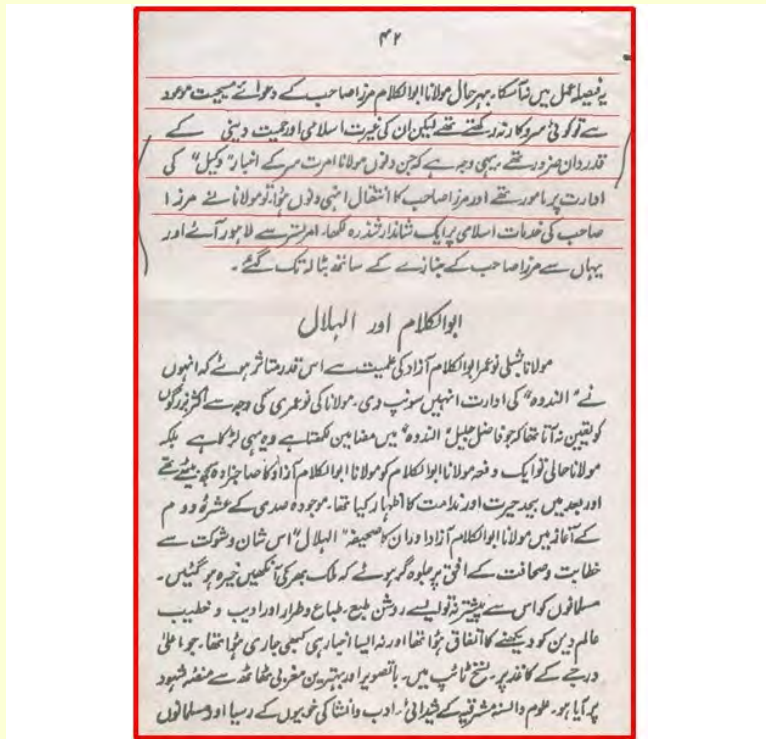 ۴۲
یہ فیصلہ عمل میں نہ آسکا۔ بہر حال مولانا ابوالکلام مرزا صاحب کے دعوائے مسیحیت موعود
سے تو کوئی سروکار نہ رکھتے تھے لیکن ان کی غیرت اسلامی اور حمیت دینی کے
قدردان ضرور تھے یہی وجہ ہے کہ جن دنوں مولانا امرت سر کے اخبار "وکیل" کی
ادارت پر مامور تھے اور مرزا صاحب کا انتقال انہی دنوں ہؤا تو مولانا نے مرزا
صاحب کی خدمات اسلامی پر ایک شاندار شذرہ لکھا۔ امرتسر سے لاہور آئے اور
یہاں سے مرزا صاحب کے جنازے کے ساتھ بٹالہ تک گئے۔
ابوالکلام اور الہلال
مولانا شبلی نوعمر ابوالکلام آزاد کی علمیت سے اس قدر متاثر ہوئے کہ انہوں
نے "الندوہ" کی ادارت انہیں سونپ دی۔ مولانا کی نوعمری کی وجہ سے اکثر بزرگوں
کو یقین نہ آتا تھا کہ جو فاضل جلیل "الندوہ" میں مضامین لکھتا ہے وہ یہی لڑکا ہے بلکہ
مولانا حالی تو ایک دفعہ مولانا ابوالکلام کو مولانا ابوالکلام آزاد کا صاحبزادہ سمجھ بیٹھے تھے
اور بعد میں بیحد حیرت اور ندامت کا اظہار کیا تھا۔ موجودہ صدی کے عشرۂ دوم
کے آغاز میں مولانا ابوالکلام آزاد اور ان کا صحیفہ "الہلال" اس شان و شوکت سے
خطابت و صحافت کے افق پر جلوہ گر ہوئے کہ ملک بھر کی آنکھیں خیرہ ہو گئیں۔
مسلمانوں کو اس سے پیشتر نہ تو ایسے روشن طبع۔ طباع و طرار اور ادیب و خطیب
عالم دین کو دیکھنے کا اتفاق ہؤا تھا اور نہ ایسا اخبار ہی کبھی جاری ہؤا تھا۔ جو اعلیٰ
درجے کے کاغذ پر۔ نسخ ٹائپ میں۔ باتصویر اور بہترین مغربی ٹھاٹھ سے منصہ شہود
پر آیا ہو۔ علوم والسنہ مشرقیہ کے شیدائی۔ ادب و انشا کی خوبیوں کے رسیا اور مسلمانوں